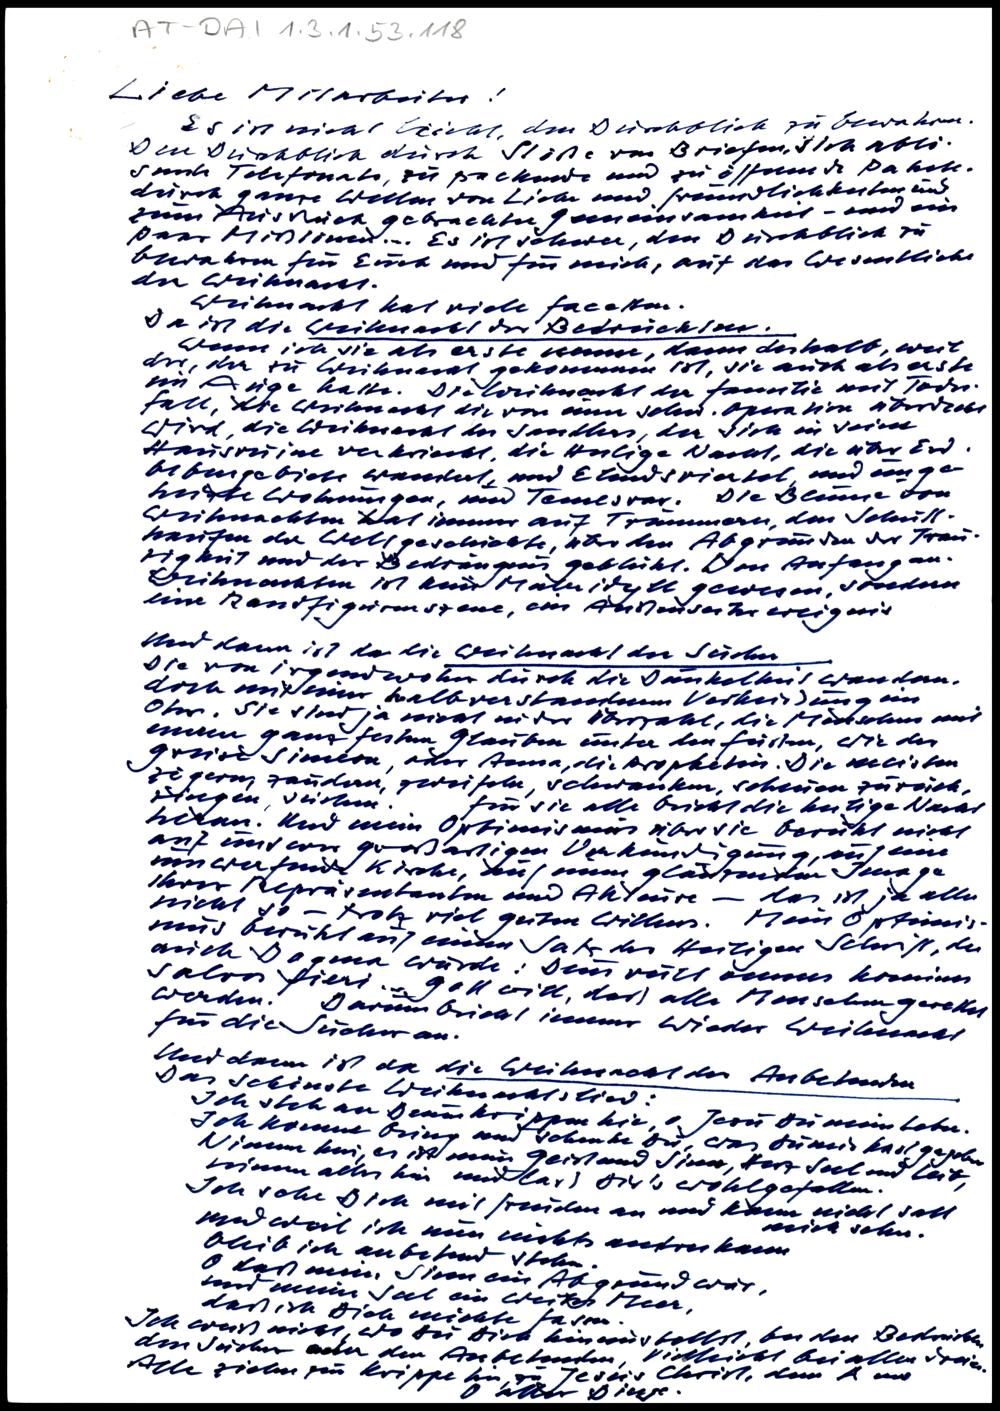 AT-DAI 1.3.1.53.118
Liebe Mitarbeiter!
Es ist nicht leicht, den Durchblick zu bewahren.
Den Durchblick durch Stöße von Briefen, sich ablö-
sende Telefonate, zu packende und zu öffnende Pakete.
durch ganze Wellen von Liebe und Freundlichkeiten und
zum Ausdruck gebrachter Gemeinsamkeit - und ein
paar Mißtönen... Es ist schwer, den Durchblick zu
bewahren für Euch und für mich, auf das Wesentliche
der Weihnacht.
Weihnacht hat viele Facetten.
Da ist die Weihnacht der Bedrückten.
Wenn ich sie als erste nenne, dann deshalb, weil
der, der zu Weihnacht gekommen ist, sie auch als erste
im Auge hatte. Die Weihnacht der Familie mit Todes-
fall, die Weihnacht die von einer schw. Operation überdeckt
wird, die Weihnacht des Sandlers, der sich in seine
Hausruine verkriecht, die Heilige Nacht, die über Erd-
bebengebiete wandert, und Elendsviertel, und unge-
heizte Wohnungen, und Temesvar. Die Blume von
Weihnachten hat immer auf Trümmern, den Schutt-
haufen der Weltgeschichte, über den Abgründen der Trau-
rigkeit und der Bedrängnis geblüht. Von Anfang an.
Weihnachten ist kein Maleridyll gewesen, sondern
eine Randfigurenszene, ein Außenseiterereignis
Und dann ist da die Weihnacht der Sucher
Die von irgendwoher durch die Dunkelheit wandern.
doch mit einer halbverstandenen Verheißung im
Ohr. Sie sind ja nicht in der Überzahl, die Menschen mit
einem ganz festen Glauben unter den Füßen, wie der
greise Simeon, oder Anna, die Prophetin. Die meisten
zögern, zaudern, zweifeln, schwanken, scheuen zurück,
ringen, suchen. Für sie alle bricht die heilige Nacht
heran. Und mein Optimismus über sie beruht nicht
auf unserer großartigen Verkündigung, auf eine
umwerfende Kirche, auf einem glänzenden Image
ihrer Repräsentanten und Akteure - das ist ja alles
nicht so - trotz viel guten Willens. Mein Optimis-
mus beruht auf einem Satz der Heiligen Schrift, der
auch Dogma wurde: Deus vult omnes homines
salvos fieri... Gott will, daß alle Menschen gerettet
werden. Darum bricht immer wieder Weihnacht
für die Sucher an.
Und dann ist da die Weihnacht der Anbetenden
Das schönste Weihnachtslied:
Ich steh an Deiner Krippen hie, o Jesu Du mein Leben.
Ich komme bring und schenke Dir, was Du mir hast gegeben
Nimm hin, es ist mein Geist und Sinn, Herz Seel und Leib,
nimm alles hin und laß Dir's wohlgefallen.
Ich sehe Dich mit Freuden an und kann nicht satt
mich sehn.
und weil ich nun nichts andres kann
bleib ich anbetend stehn.
O daß mein Sinn ein Abgrund wär,
und meine Seel ein weites Meer,
daß ich Dich möchte fassen.
Ich weiß nicht, wo Du Dich hinunstellst, bei den Bedrückten
den Sucher oder den Anbetenden, Vielleicht bei allen dreien.
Alle ziehen zur Krippe hin zu Jesus Christ, dem A und
O aller Dinge.